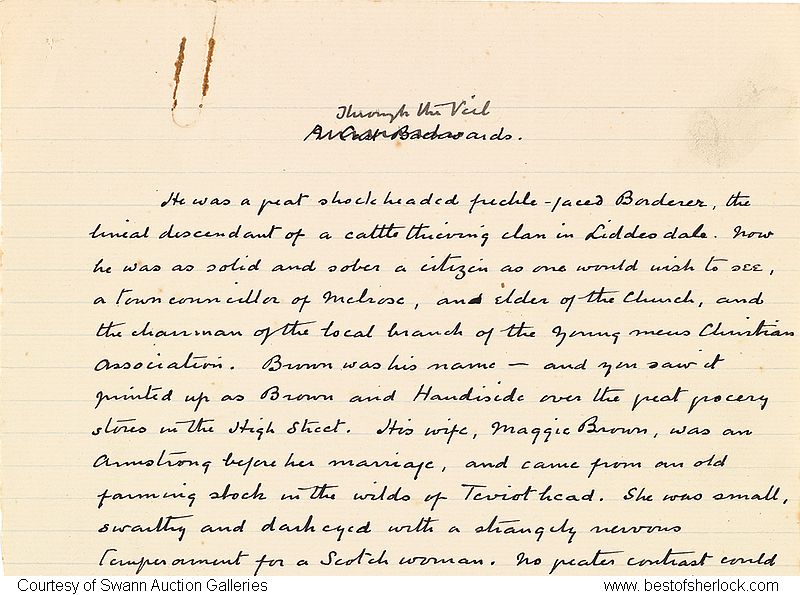 Through the Veil
Backwards.
He was a great shockheaded freckle-faced Borderer, the
lineal descendant of a cattle thieving clan in Liddesdale. Now
he was as solid and sober a citizen as one would wish to see,
a town councillor of Melrose, and elder of the Church, and
the chairman of the local branch of the Young mens Christian
Association. Brown was his name – and you saw it
printed up as Brown and Handiside over the great grocery
stores in the High Street. His wife, Maggie Brown, was an
Armstrong before her marriage, and came from an old
farming stock in the wilds of Teviothead. She was small,
swarthy and darkeyed with a strangely nervous
temperament for a Scotch woman. No greater contrast could
Courtesy of Swann Auction Galleries
www. bestofsherlock.com